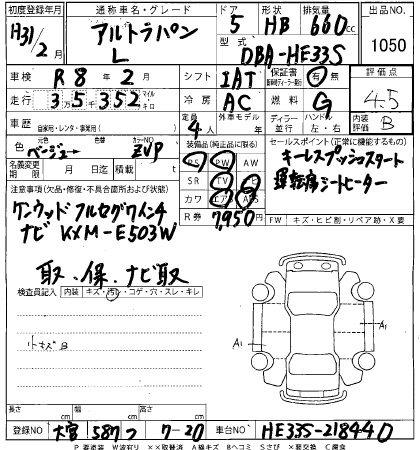 初度登録年月 通称車名・グレード ドア 形状 排気量 出品NO.
H31/2月 アルトラパン L 5 HB 660cc 1050
型式 DBA-HE33S
車検 R8年2月 シフト IAT 保証書 有 無 評価点 4.5
走行 35352 マイル キロ 冷房 AC 燃料 G 内装 B
車歴 自家用・レンタ・事業用( ) 定員 4人 外車モデル ディーラー 並行 ハンドル 左・右
色 元色 ベージュー 色替 カラーNO ZVP 装備品(純正品に限る) セールスポイント(正常に機能するもの)
名義変更期限 月 日 積載 PS PW AW キーレスプッシュスタート
SR TV 運転席シートヒーター
注意事項(欠品・修復・不具合箇所および状態) カワ エアB ABS
ケンウッド フルセグ7インチ R券 7,950
ナビ KXM-E503W FW キズ・ヒビ割・リペア跡・X要
取・保・ナビ取
検査員記入 内装 キズ・汚レ・コゲ・穴・スレ・キレ
A1 A1
長さ cm 幅 cm 高さ cm
登録NO 大宮 587 つ 7-20 車台NO HE33S-218440
P 要塗装 W波有り ××取替済 A線キズ Bヘコミ Sさび ×要交換 C腐食